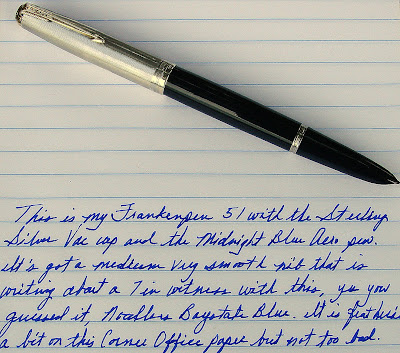 This is my Frankenpen 51 with the Sterling
Silver Vac cap and the Midnight Blue Aero pen.
It's got a medium very smooth nib that is
writing about a 7 in wetness with this, yes you
guessed it, Noodlers Baystate Blue. It is
a bit on this Corner Office paper but not too bad.